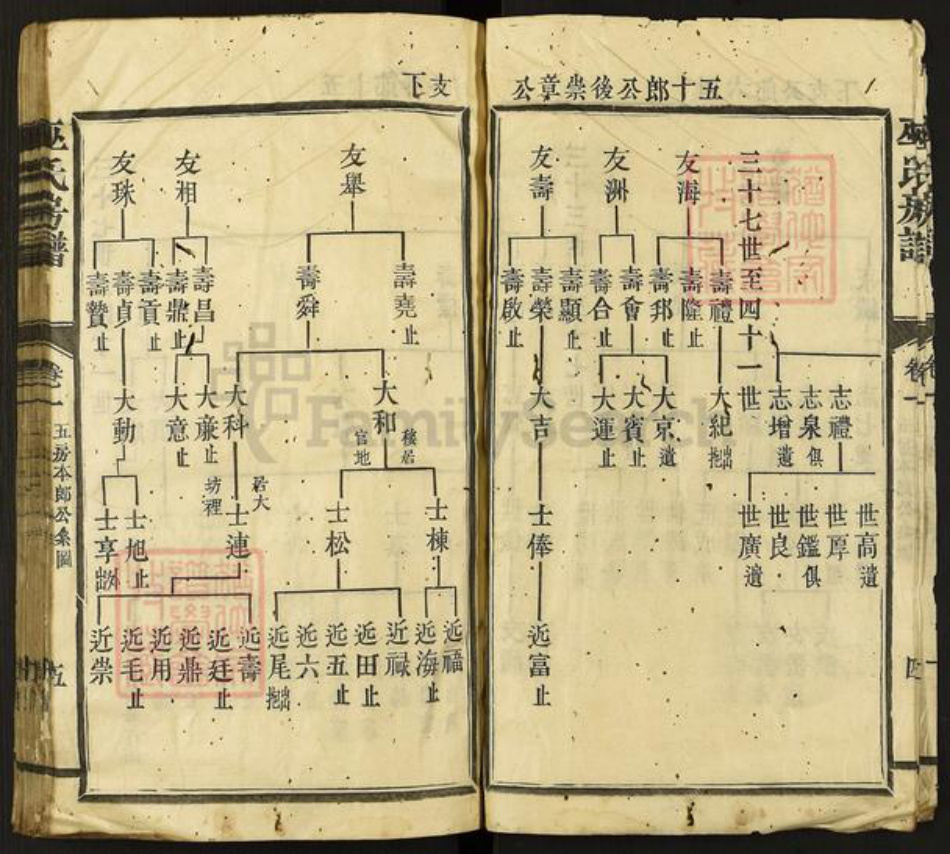 五十郎公後崇章公
志禮
志泉俱
志增遺
世高遺
世厚
世鑑俱
世良
世廣遺
三十七世至四十一世
友海
壽禮
壽隆止
壽邦止
大紀
友洲
壽會
壽合止
大京遺
大賓止
大運止
友壽
壽顯止
壽榮
壽啟止
大吉
士俸
近富止
卷一
四
支下
友舉
壽堯止
壽舜
大和
移居
官地
大科
居大
坊裡
士棟
士松
士連
近福
近海止
近祿
近田止
近五止
近六
近尾
近壽
近廷止
近鼎
近用
近毛止
近崇
友相
壽昌
壽鼎止
大兼止
大意止
友珠
壽貢止
壽貞
壽贊止
大動
士旭止
士享
巫氏房譜
卷一
五房本郎公系圖
五
FamilySearch